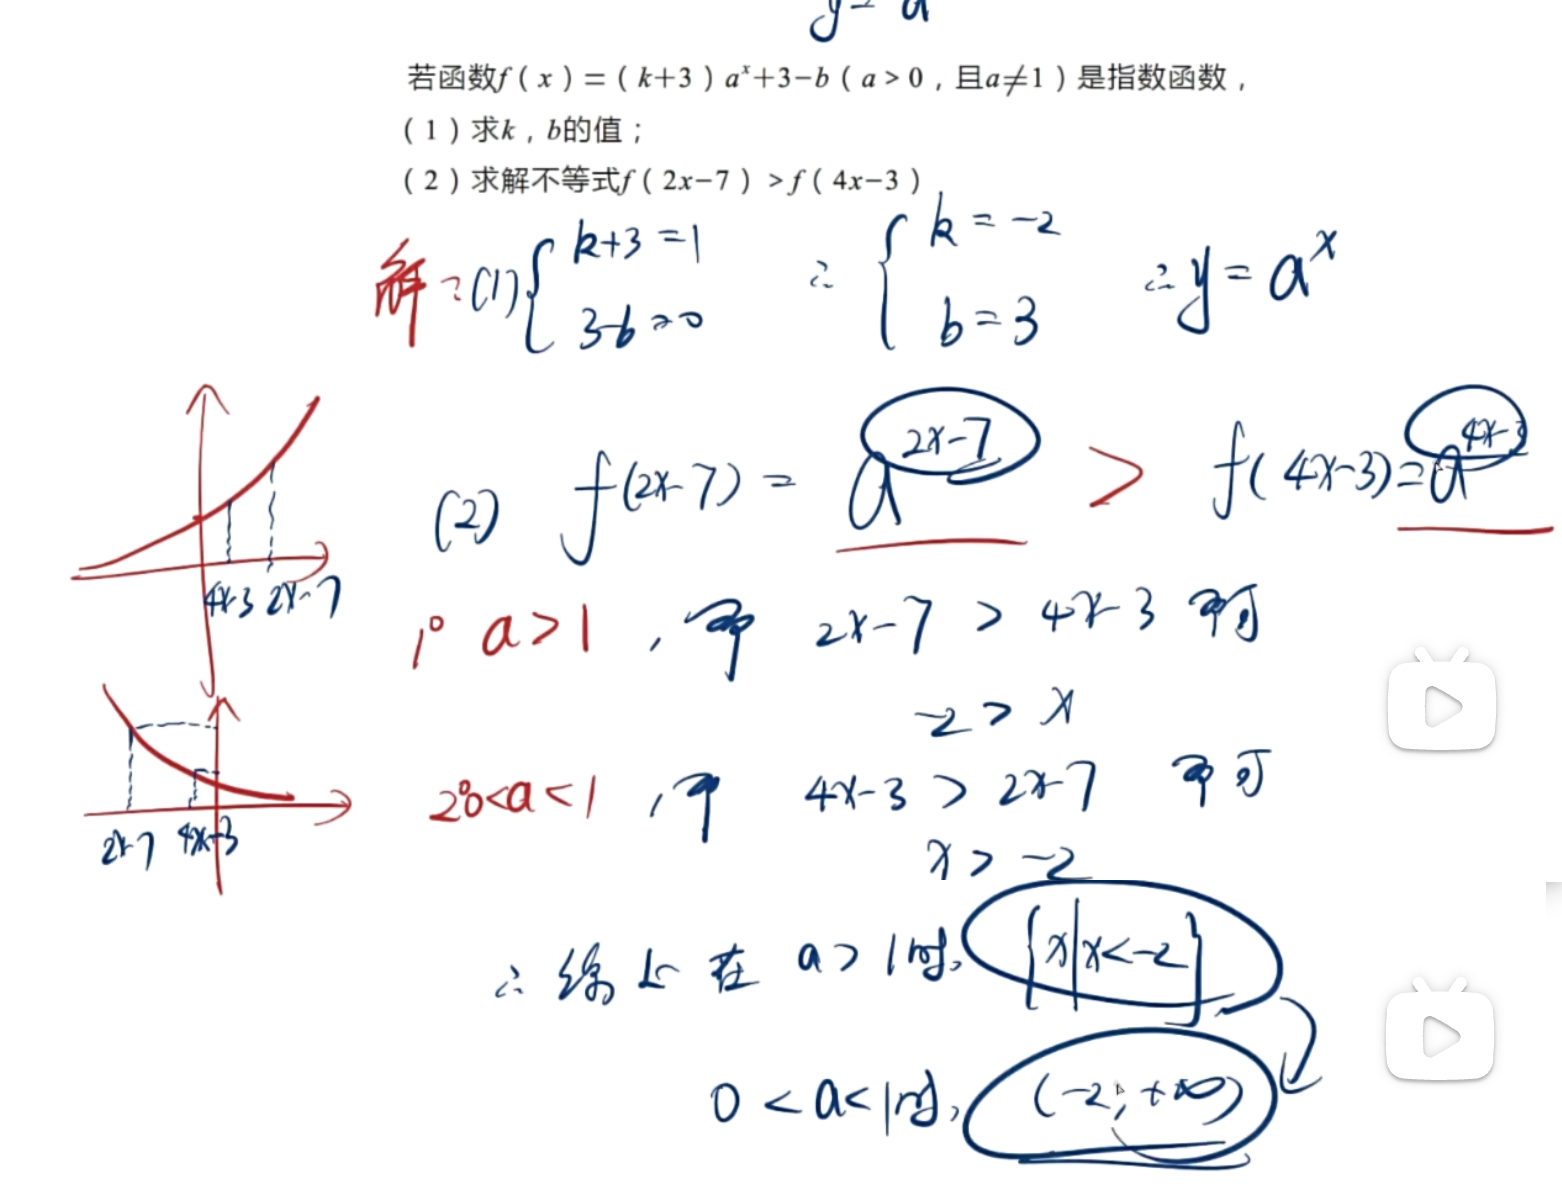 y = a
若函数f（x）=（k+3）aˣ+3−b（a＞0，且a≠1）是指数函数，
（1）求k，b的值；
（2）求解不等式f（2x−7）＞f（4x−3）
解：(1) { k+3=1 3-b=0 ∴ { k=-2 b=3 ∴ y=aˣ
(2) f(2x-7) = a^{2x-7} > f(4x-3) = a^{4x-3}
4x-3 2x-7
1° a>1 , 即 2x-7 > 4x-3 即可
-2 > x
2° 0<a<1 , 即 4x-3 > 2x-7 即可
2x-7 4x-3
x > -2
∴ 综上 在 a>1时, {x|x<-2}
0<a<1时, (-2, +∞)